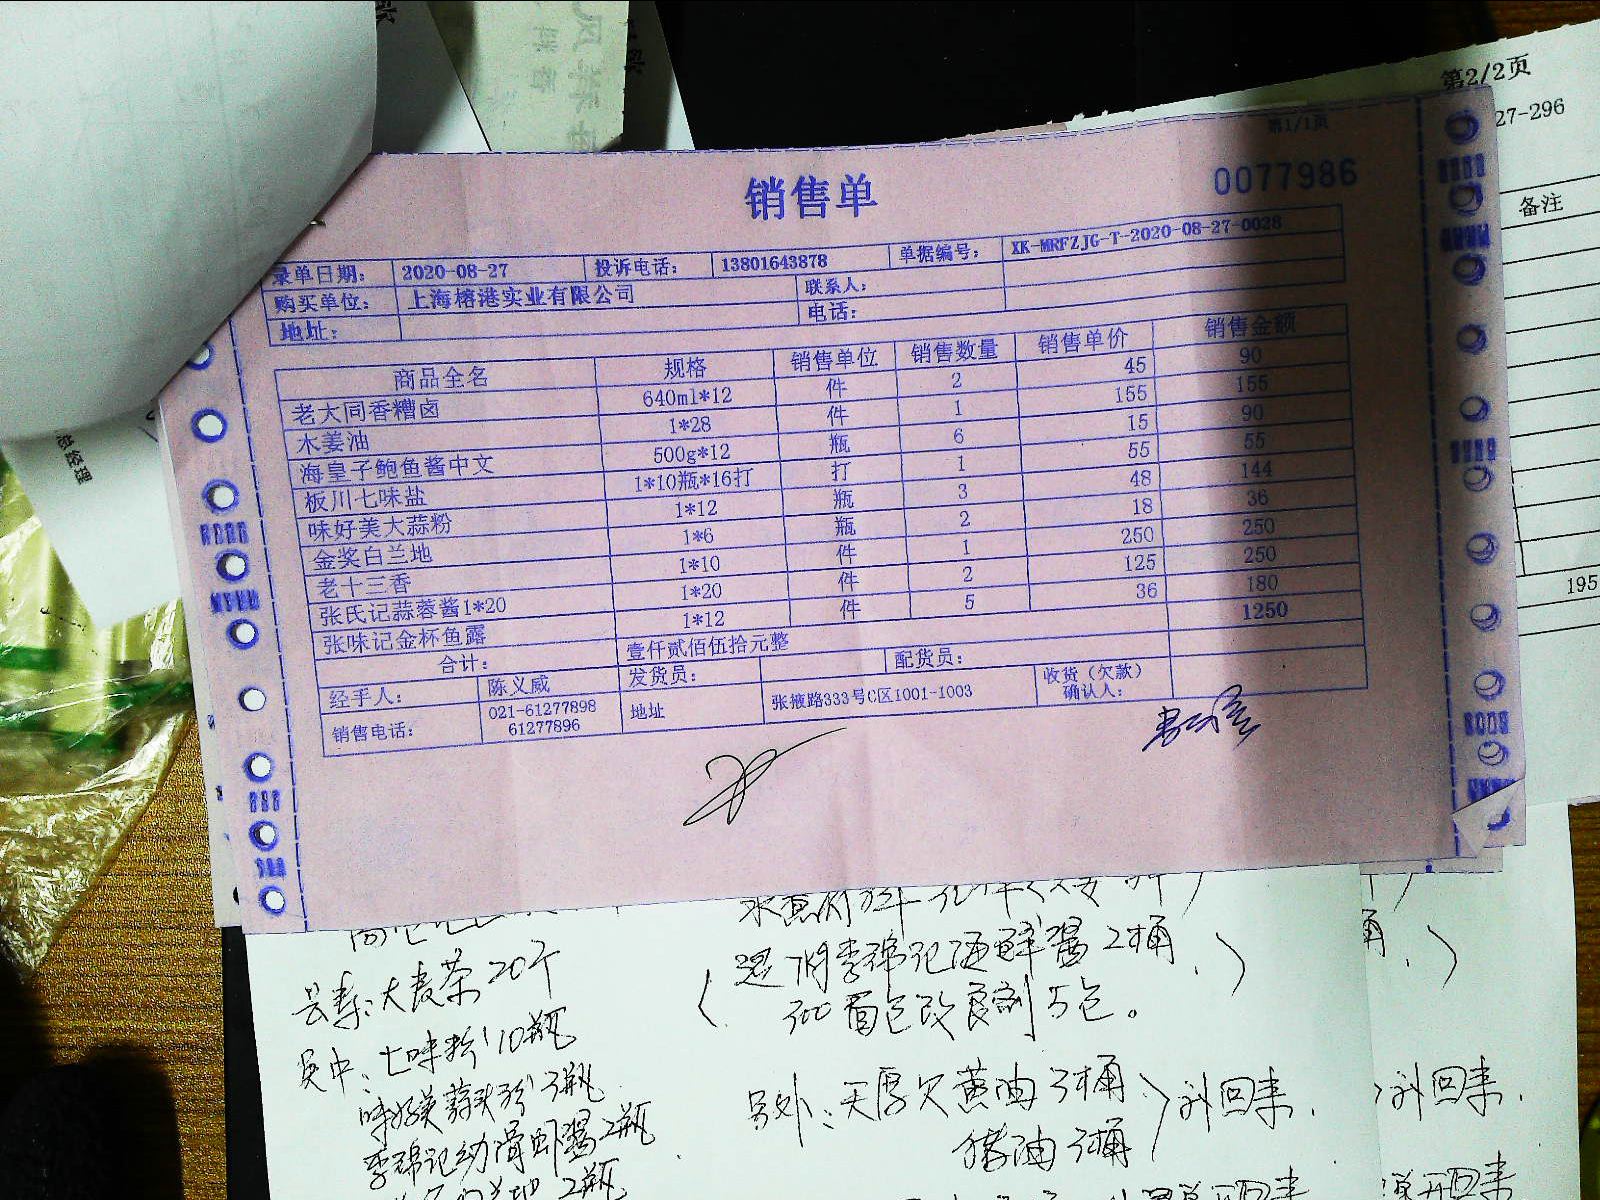 第2/2页
27-296
备注
195
第1/1页
销售单
0077986
录单日期: 2020-08-27 投诉电话: 13801643878 单据编号: XK-MRFZJG-T-2020-08-27-0028
购买单位: 上海榕港实业有限公司 联系人:
地址: 电话:
商品全名 规格 销售单位 销售数量 销售单价 销售金额
老大同香糟卤 640ml*12 件 2 45 90
木姜油 1*28 件 1 155 155
海皇子鲍鱼酱中文 500g*12 瓶 6 15 90
板川七味盐 1*10瓶*16打 打 1 55 55
味好美大蒜粉 1*12 瓶 3 48 144
金奖白兰地 1*6 瓶 2 18 36
老十三香 1*10 件 1 250 250
张氏记蒜蓉酱1*20 1*20 件 2 125 250
张味记金杯鱼露 1*12 件 5 36 180
合计: 壹仟贰佰伍拾元整 1250
经手人: 陈义威 发货员: 配货员:
销售电话: 021-61277898 61277896 地址 张掖路333号C区1001-1003 收货(欠款)确认人:
大麦茶20个
七味粉10瓶
味好美蒜头粉3瓶
李锦记幼滑虾酱2瓶
2瓶
李锦记海鲜酱2桶
面包改良剂5包。
另外:天厚欠黄油3桶
猪油3桶
补回来.
补回来.